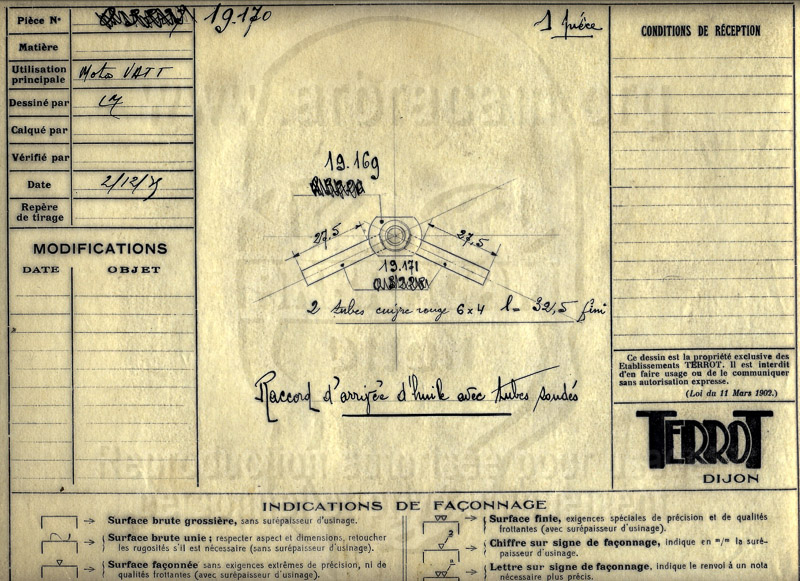 Pièce N°
19.170
1 pièce
Matière
Utilisation principale
Moto VATT
Dessiné par
Calqué par
Vérifié par
Date
2/12/
Repère de tirage
MODIFICATIONS
DATE OBJET
CONDITIONS DE RÉCEPTION
19.169
27,5
27,5
19.171
2 tubes cuivre rouge 6x4 l= 32,5 fini
Raccord d'arrivée d'huile avec tubes soudés
Ce dessin est la propriété exclusive des
Etablissements TERROT. Il est interdit
d'en faire usage ou de le communiquer
sans autorisation expresse.
(Loi du 11 Mars 1902.)
TERROT
DIJON
INDICATIONS DE FAÇONNAGE
Surface brute grossière, sans surépaisseur d'usinage.
Surface brute unie; respecter aspect et dimensions, retoucher
les rugosités s'il est nécessaire (sans surépaisseur d'usinage).
Surface façonnée sans exigences extrêmes de précision, ni de
qualités frottantes (avec surépaisseur d'usinage).
Surface finie, exigences spéciales de précision et de qualités
frottantes (avec surépaisseur d'usinage).
Chiffre sur signe de façonnage, indique en "/" la suré-
paisseur d'usinage.
Lettre sur signe de façonnage, indique le renvoi à un nota
nécessaire plus précis.